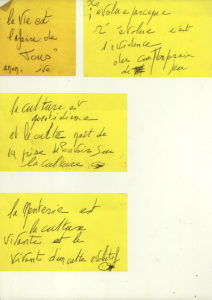 la Vie est
l'affaire de
"Tous"
évolue parceque
évolue c'est
l'évidence
du contemporain
du jeu
la culture est
quotidienne
et le culte naît de
la prise de pouvoir sur
la culture
la Menterie est
la culture
vivante et le
vivante d'un culte